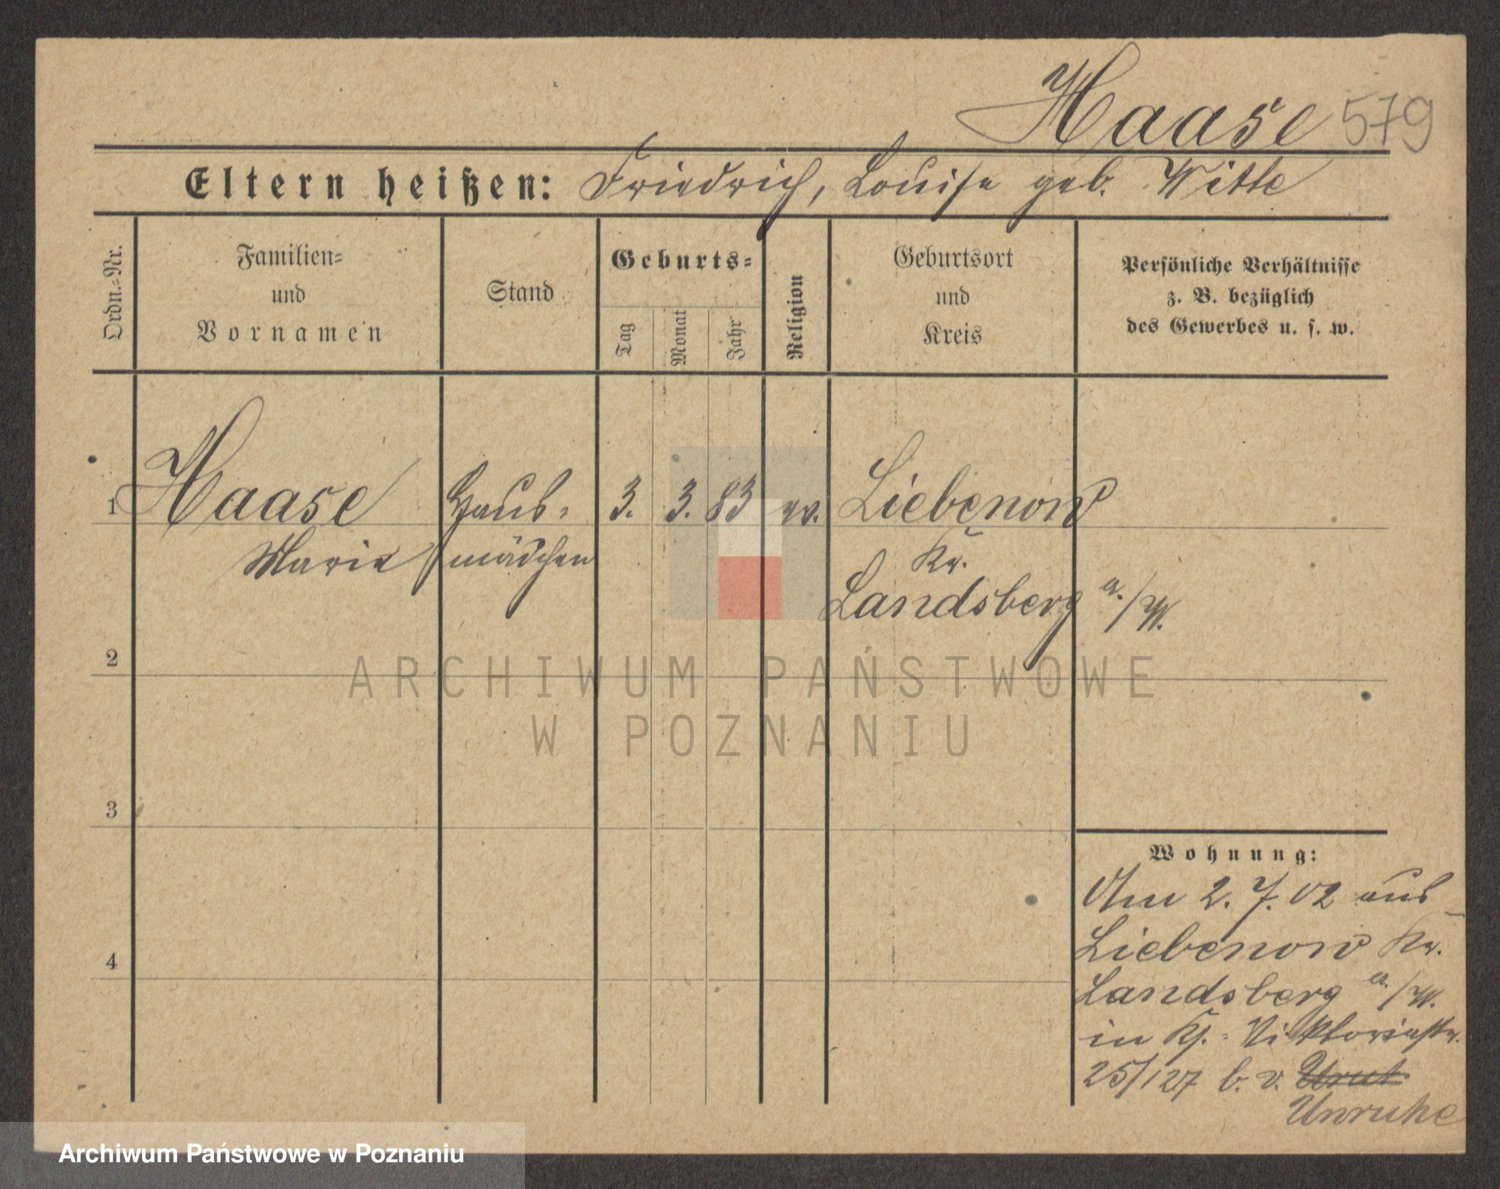 Haase 579
Eltern heißen: Friedrich, Louise geb. Witte
Ordn.-Nr.
Familien-
und
Vornamen
Stand
Geburts-
Tag
Monat
Jahr
Religion
Geburtsort
und
Kreis
Persönliche Verhältnisse
z. B. bezüglich
des Gewerbes u. s. w.
1 Haase Haus- 3. 3. 83 ev. Liebenow
Marie mädchen Kr.
Landsberg a./W.
2
ARCHIWUM PAŃSTWOWE
W POZNANIU
3
Wohnung:
Am 2. 7. 02 aus
Liebenow Kr.
4
Landsberg a./W.
in Viktoriastr.
25/127 b. v.
Unruhe
Archiwum Państwowe w Poznaniu